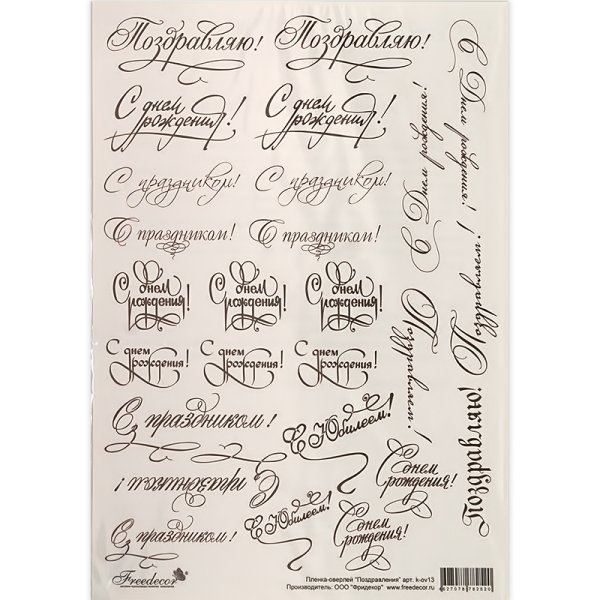 Поздравляю! Поздравляю!
С днем рождения! С днем рождения!
С праздником! С праздником!
С праздником! С праздником!
С днём рождения! С днём рождения! С днём рождения!
С днем рождения! С днем рождения! С днем рождения!
С праздником!
С праздником!
С праздником!
С Юбилеем!
С Юбилеем!
С днем рождения!
С днем рождения!
С Днем рождения!
С Днем рождения!
Поздравляем!
Поздравляем!
Поздравляю!
Freedecor
Пленка-оверлей "Поздравления" арт. k-ov13
Производитель: ООО "Фридекор" www.freedecor.ru
4627078782520